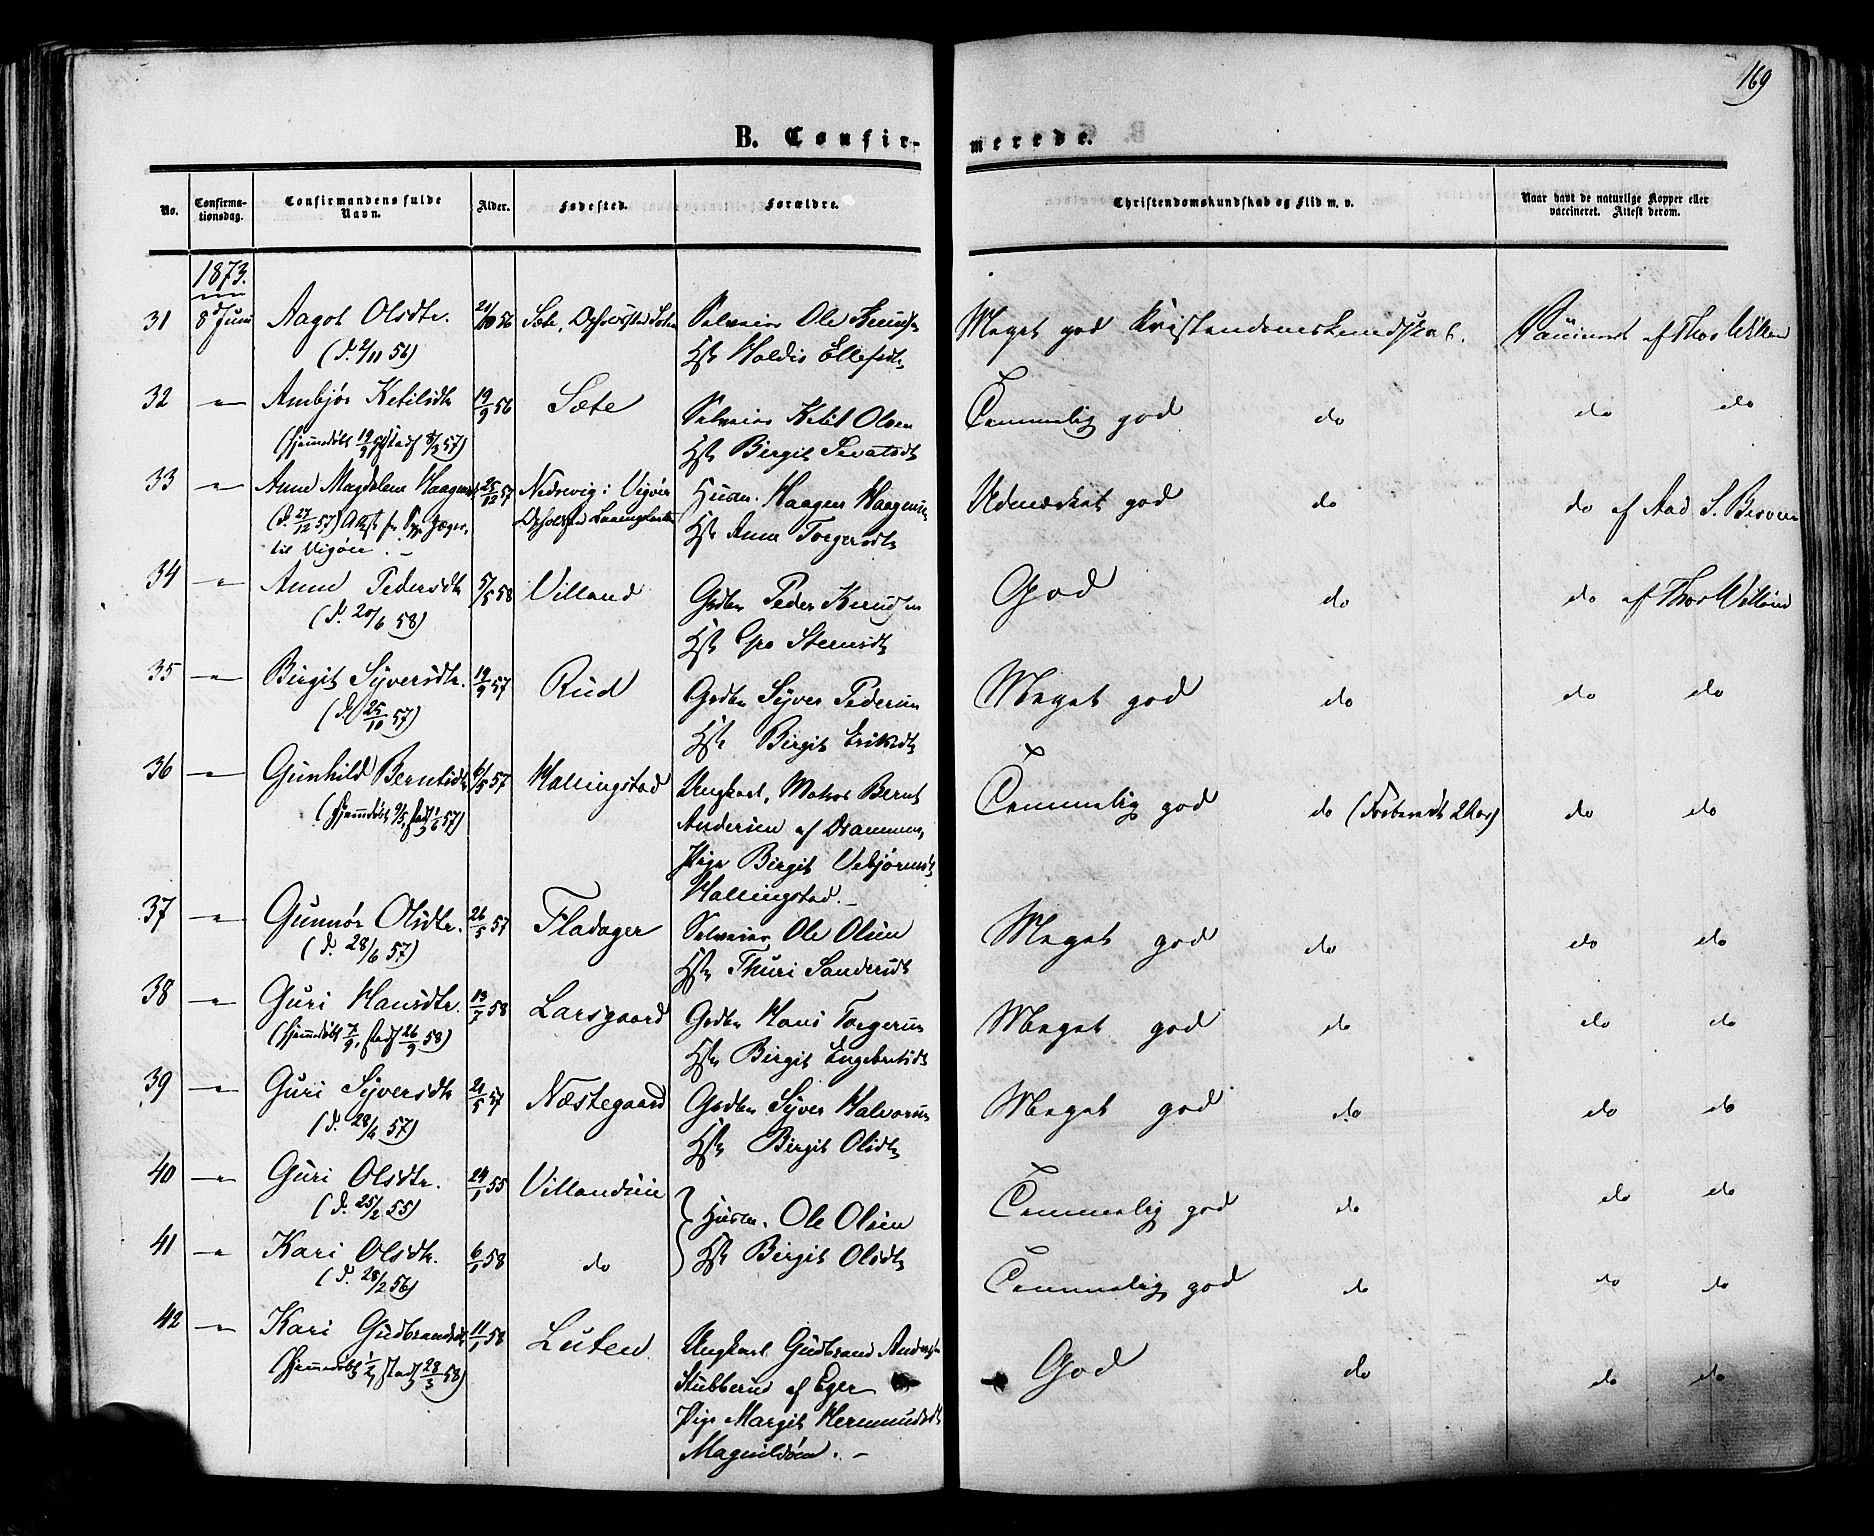 169
B. Confir- merede.
No. Confirma-tionsdag. Confirmandens fulde Navn. Alder. Fødested. Forældre. Christendomskundskab og Flid m. v. Naar havt de naturlige Kopper eller vaccineret. Attest derom.
1873.
31 8d Juni Aagot Olsdtr. 21/10 56 Sæte, Selveier Ole Knuds. Meget god Kristendomskundskab. Vaccineret af Thor Villand
(d. 2/11 56) Hst Holdis Ellefsdtr
32 Ambjør Ketilsdtr 19/9 56 Sæte Selveier Ketil Olsen Temmelig god do do do
(hjemmedøbt 19/9 56, stadf 8/2 57) Hst Birgit
33 Anne Magdalene Haagensd 25/12 57 Nedrevig i Vigøer Husm. Haagen Haagensen Udmærket god do do af Aad S. Brovn
(d. 27/12 57) Att fr Spr Jæger Opholdssted Hst Anne Torgersdtr
til Vigøer. -
34 Anne Pedersdtr 5/5 58 Villand Gdbr Peder Knudsen God do do af Thor Villand
(d. 20/6 58) Hst Gro Steensdtr
35 Birgit Syversdtr. 19/9 57 Rud Gdbr Syver Pedersen Meget god do do do
(d. 25/10 57) Hst Birgit Eriksdtr
36 Gunhild Berntsdtr 6/5 57 Hallingstad Ungkarl, Matros Bernt Temmelig god do (Forberedt 2 Aar) do do
(hjemmdøbt 9/5, stadf 1/6 57) Andersen af Drammen,
Pige Birgit Vebjørnsdt
Hallingstad. -
37 Gunnør Olsdtr. 26/5 57 Fladager Selveier Ole Olsen Meget god do do do
(d. 28/6 57) Hst Thuri Sandersdt
38 Guri Hansdtr. 13/7 58 Larsgaard Gdbr Hans Torgersen Meget god do do do
(hjemmedøbt 7/9, stadf 26/9 58) Hst Birgit Engebretsdt
39 Guri Syversdtr 21/5 57 Næstegaard Gdbr Syver Halvorsen Meget god do do do
(d. 28/6 57) Hst Birgit Olsdtr
40 Guri Olsdtr. 24/1 55 Villandseie Husm. Ole Olsen Temmelig god do do do
(d. 25/2 55)
41 Kari Olsdtr. 6/1 58 do Hst Birgit Olsdtr Temmelig god do do do
(d. 28/2 56)
42 Kari Gudbrandsdtr 11/1 58 Luten Ungkarl Gudbrand Anders God do do do
(hjemmedøbt stadf 28/3 58) Stubberud af Eger
Pige Margit Hermundsdt